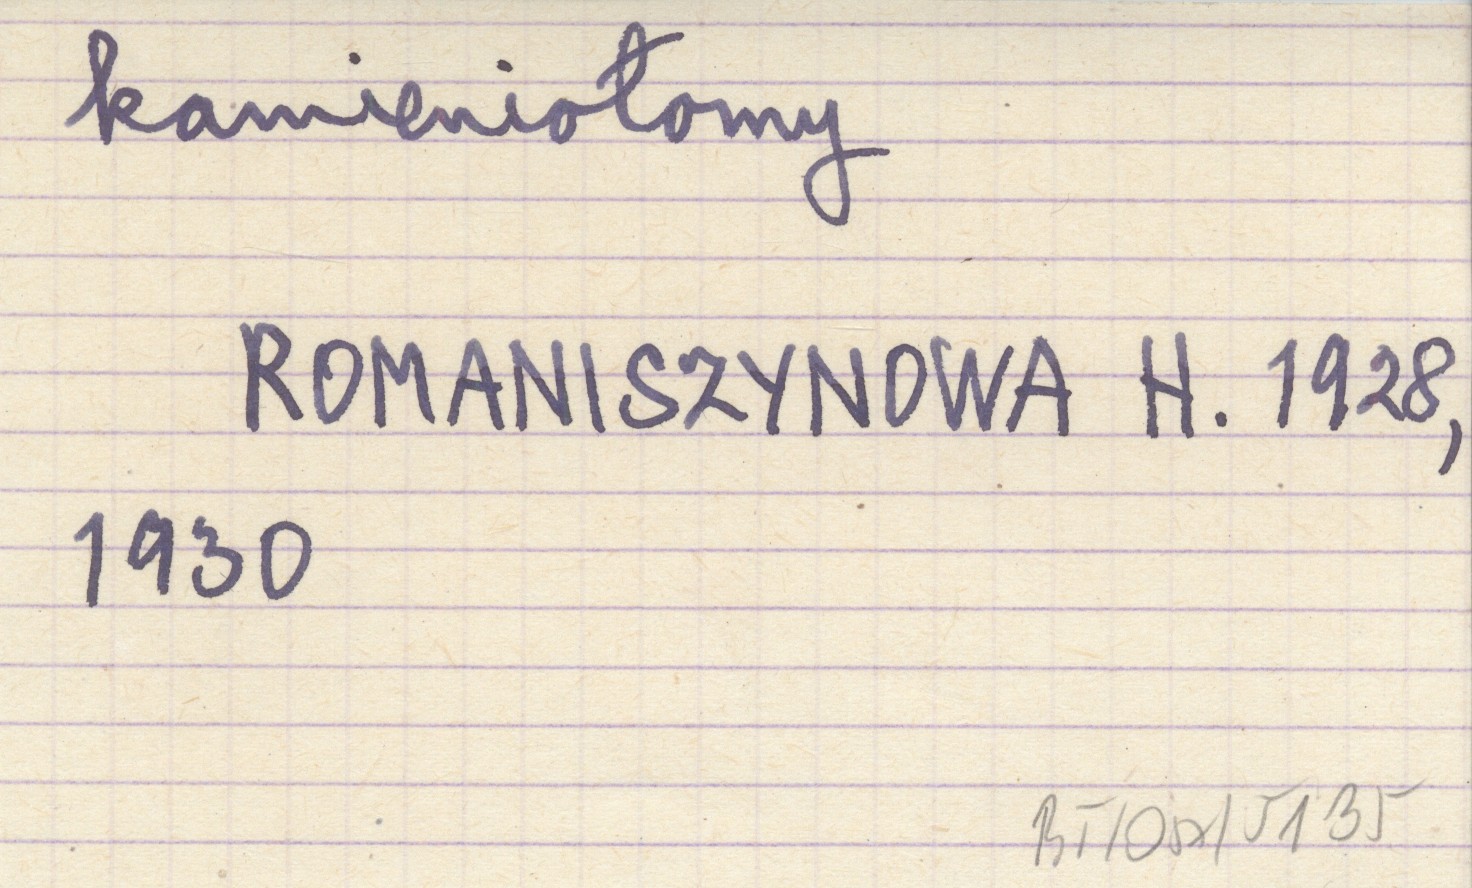 kamieniołomy
ROMANISZYNOWA H. 1928,
1930
BT/Osz/5135